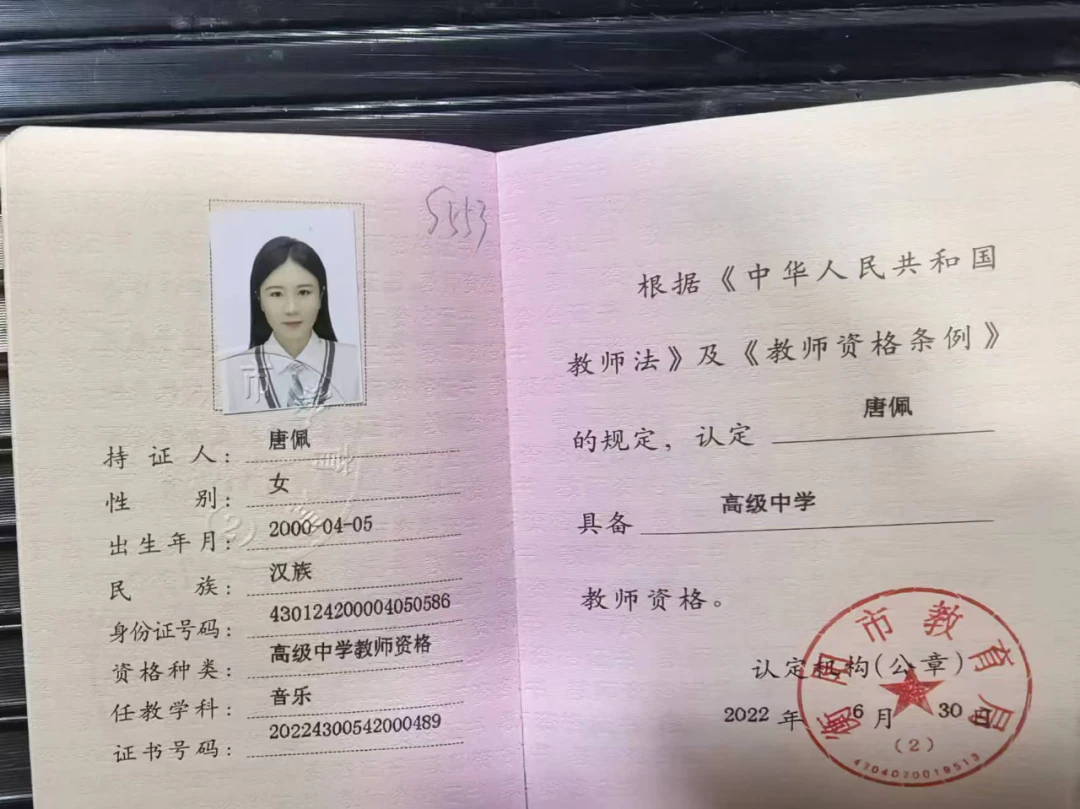 5553
持证人：唐佩
性别：女
出生年月：2000-04-05
民族：汉族
身份证号码：430124200004050586
资格种类：高级中学教师资格
任教学科：音乐
证书号码：20224300542000489
根据《中华人民共和国
教师法》及《教师资格条例》
的规定，认定 唐佩
具备 高级中学
教师资格。
认定机构(公章)
2022 年 6 月 30 日
衡阳市教育局
(2)
4304070019513